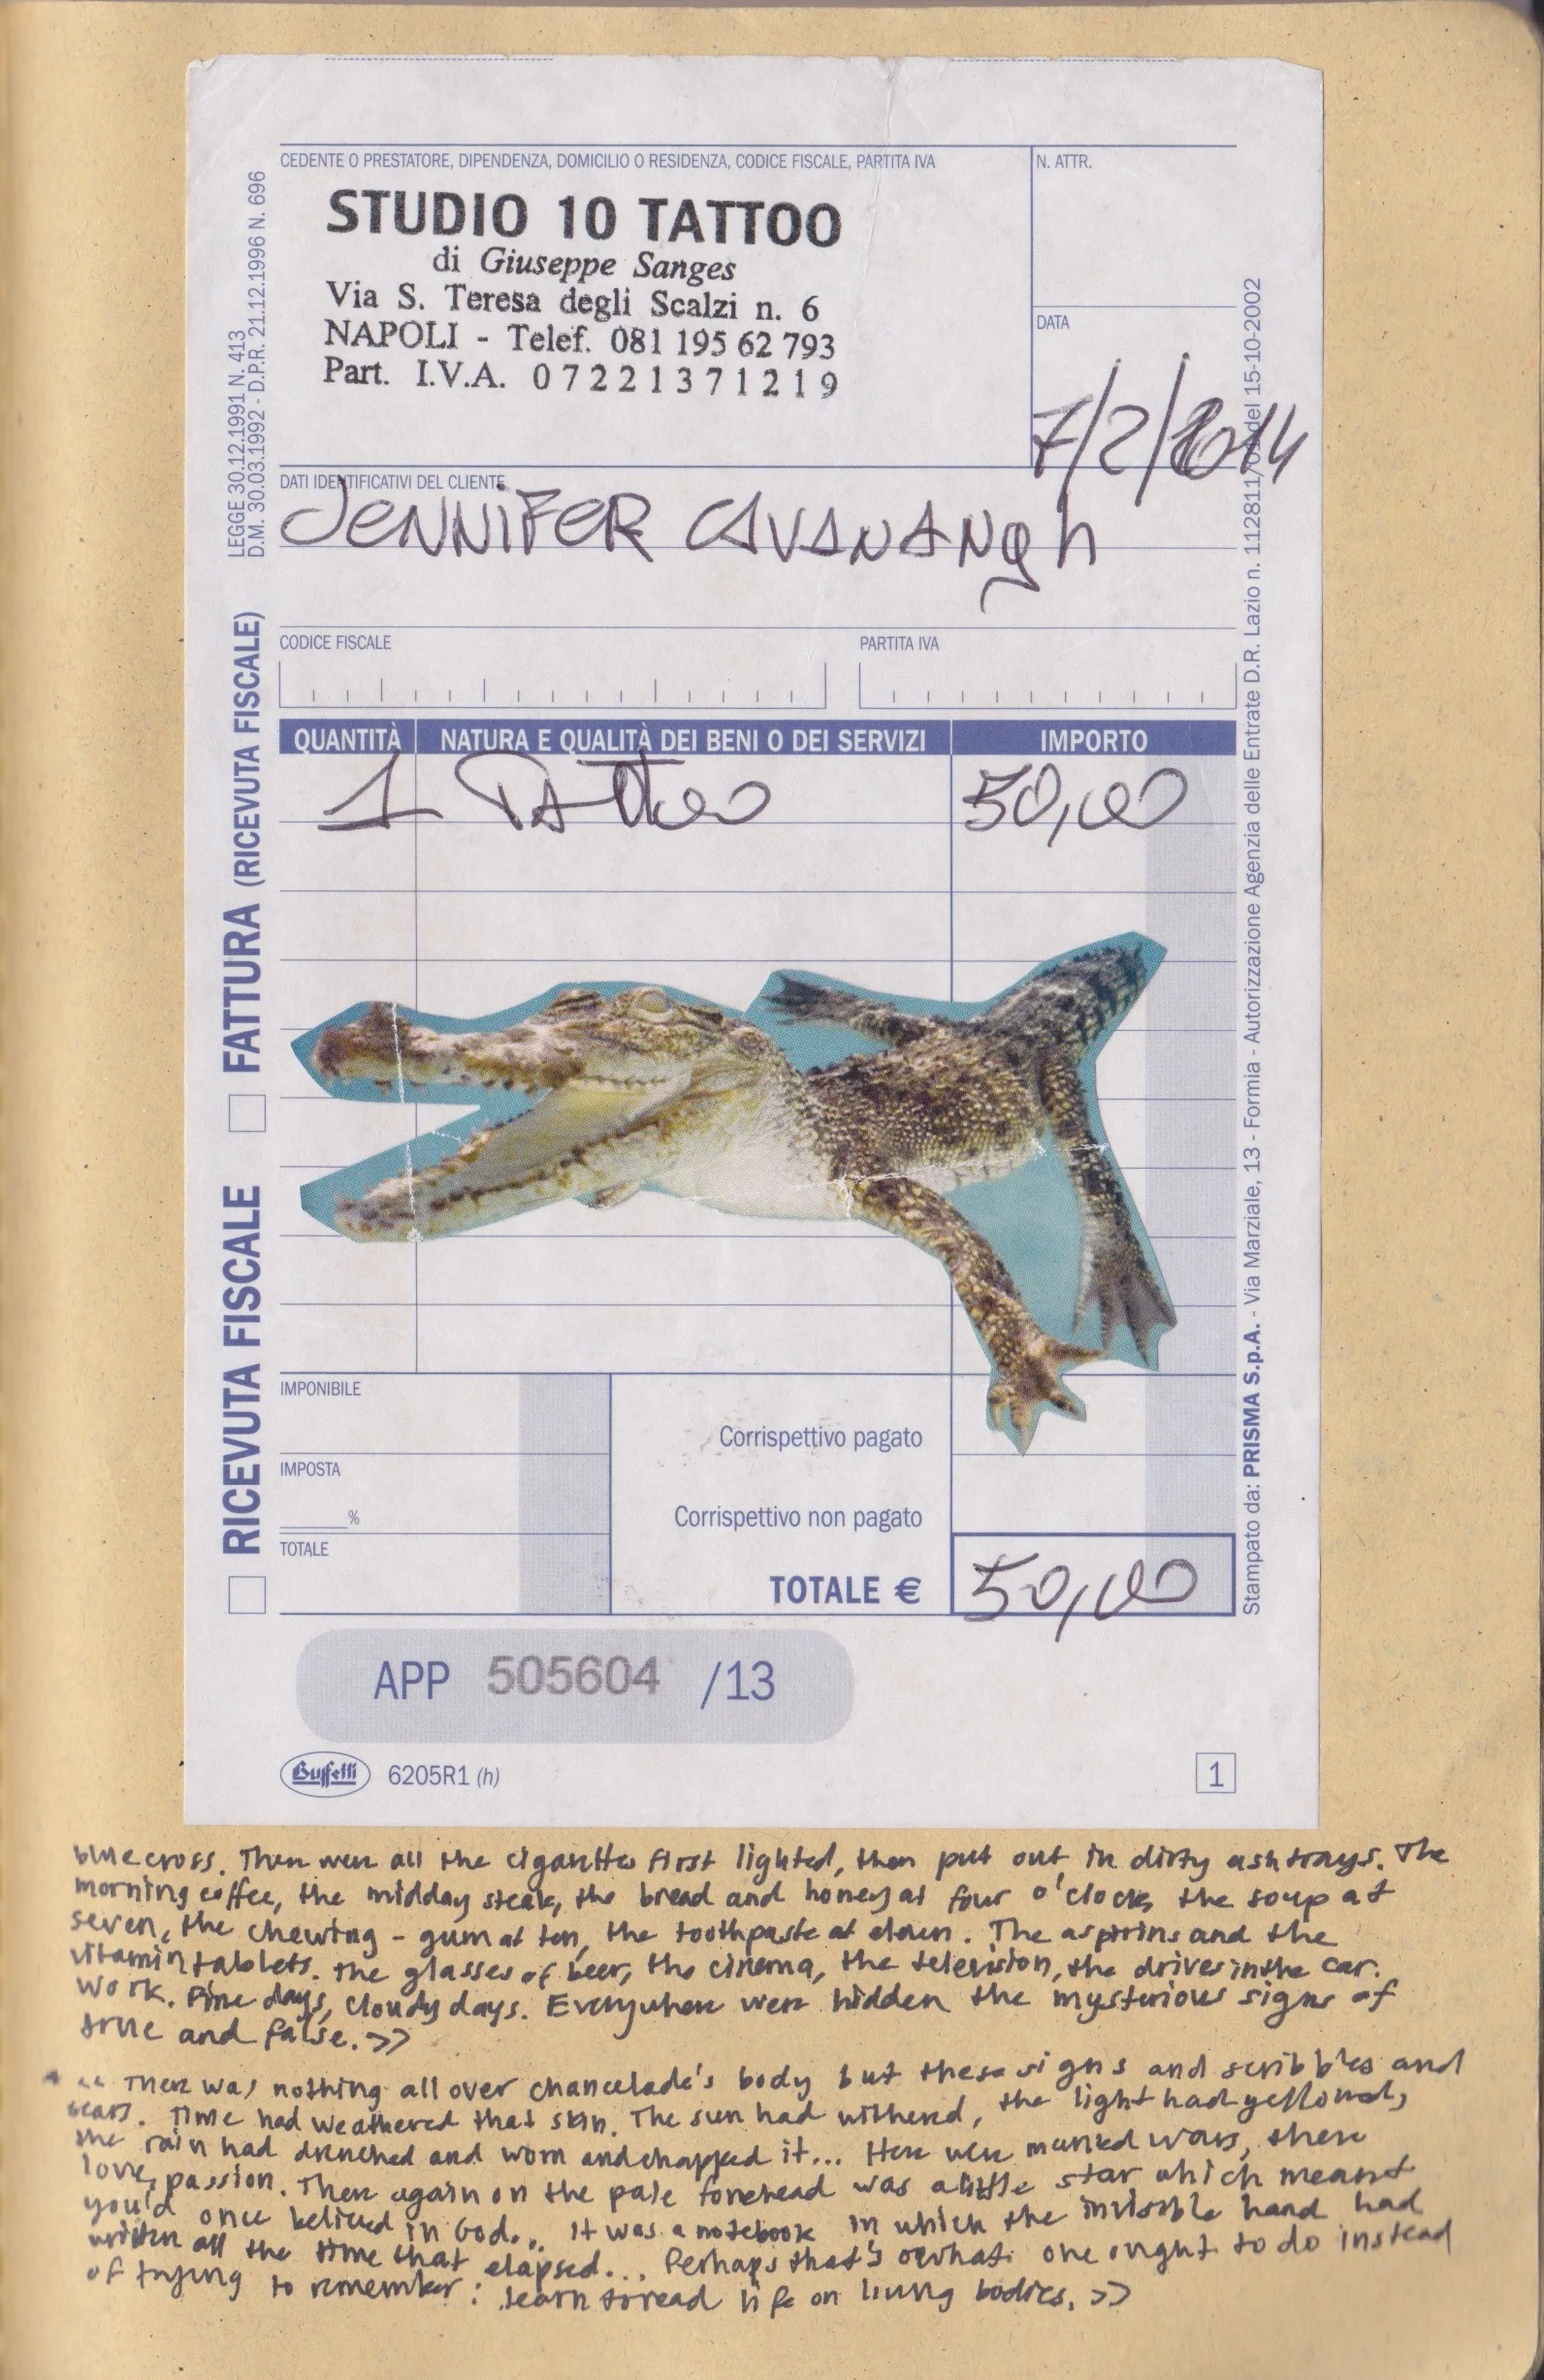 CEDENTE O PRESTATORE, DIPENDENZA, DOMICILIO O RESIDENZA, CODICE FISCALE, PARTITA IVA
N. ATTR.
STUDIO 10 TATTOO
di Giuseppe Sanges
Via S. Teresa degli Scalzi n. 6
NAPOLI - Telef. 081 195 62 793
Part. I.V.A. 07221371219
DATA
7/2/2014
DATI IDENTIFICATIVI DEL CLIENTE
JENNIFER CAVANANgh
CODICE FISCALE
PARTITA IVA
QUANTITÀ NATURA E QUALITÀ DEI BENI O DEI SERVIZI IMPORTO
1 TATTOO 50,00
IMPONIBILE
Corrispettivo pagato
IMPOSTA
%
Corrispettivo non pagato
TOTALE
TOTALE € 50,00
APP 505604 /13
Buffetti 6205R1 (h)
1
LEGGE 30.12.1991 N. 413
D.M. 30.03.1992 - D.P.R. 21.12.1996 N. 696
FATTURA (RICEVUTA FISCALE)
RICEVUTA FISCALE
Stampato da: PRISMA S.p.A. - Via Marziale, 13 - Formia - Autorizzazione Agenzia delle Entrate D.R. Lazio n. 112811/ del 15-10-2002
blue cross. Then were all the cigarettes first lighted, then put out in dirty ashtrays. The
morning coffee, the midday steak, the bread and honey at four o'clock, the soup at
seven, the chewing-gum at ten, the toothpaste at dawn. The aspirins and the
vitamin tablets. The glasses of beer, the cinema, the television, the drives in the car.
Work. Fine days, cloudy days. Everywhere were hidden the mysterious signs of
true and false. >>
<< There was nothing all over chancelade's body but these signs and scribbles and
scars. Time had weathered that skin. The sun had withered, the light had yellowed,
the rain had drenched and worn and chapped it... Here were marked wars, there
love, passion. There again on the pale forehead was a little star which meant
you'd once believed in God... It was a notebook in which the invisible hand had
written all the time that elapsed... Perhaps that's what one ought to do instead
of trying to remember: learn to read life on living bodies. >>